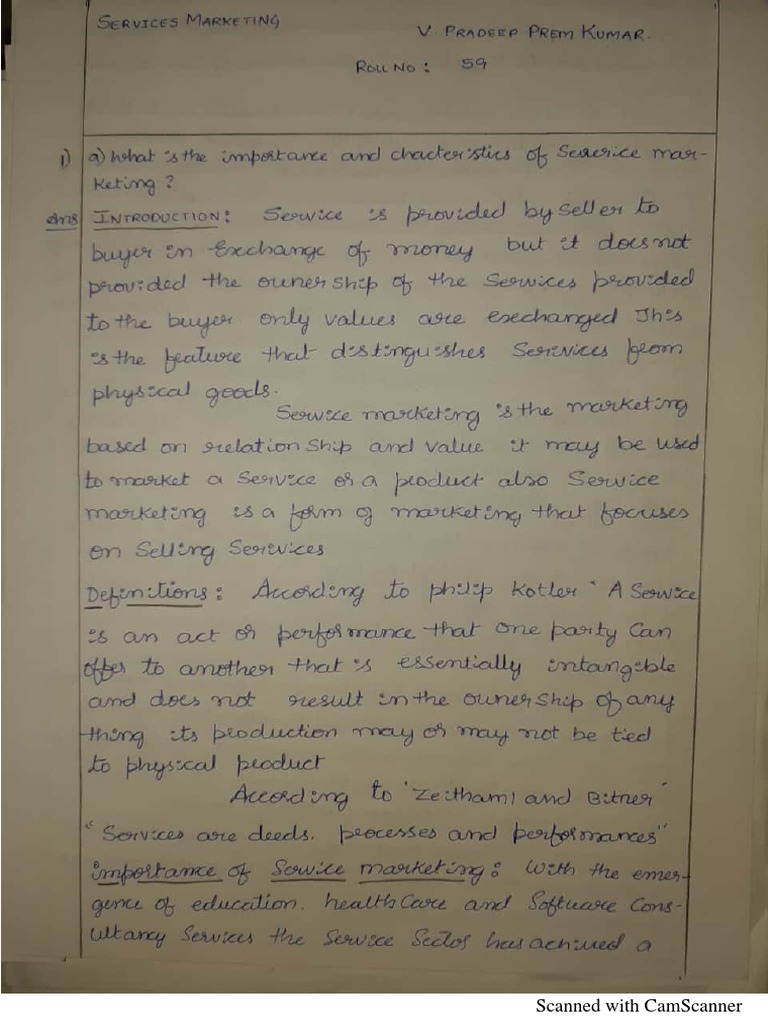 SERVICES MARKETING
V. PRADEEP PREM KUMAR.
ROLL NO : 59
1) a) What is the importance and chacteristics of Seservice mar-
keting ?
Ans INTRODUCTION : Service is provided by seller to
buyer in Exchange of money but it does not
provided the ownership of the Services provided
to the buyer only values are exechanged This
is the feature that distinguishes Services from
physical goods.
Service marketing is the marketing
based on relation ship and value it may be used
to market a Service or a product also Service
marketing is a form of marketing that focuses
on Selling Services
Definitions : According to philip Kotler " A Service
is an act or performance that one party Can
offer to another that is essentially intangible
and does not result in the owner ship of any
thing its production may or may not be tied
to physical product
According to 'Zeithaml and Bitner'
"Services are deeds. processes and performances"
importance of Service marketing : With the emer-
gence of education. health Care and Software Cons-
ultancy Services the Service Sector has achived a
Scanned with CamScanner